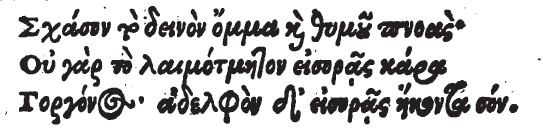 Σχάσον τὸ δεινὸν ὄμμα καὶ θυμοῦ πνοάς·
Οὐ γὰρ τὸ λαιμότμητον εἰσορᾷς κάρα
Γοργόνος· ἀδελφὸν δ' εἰσορᾷς ἥκοντα σόν.